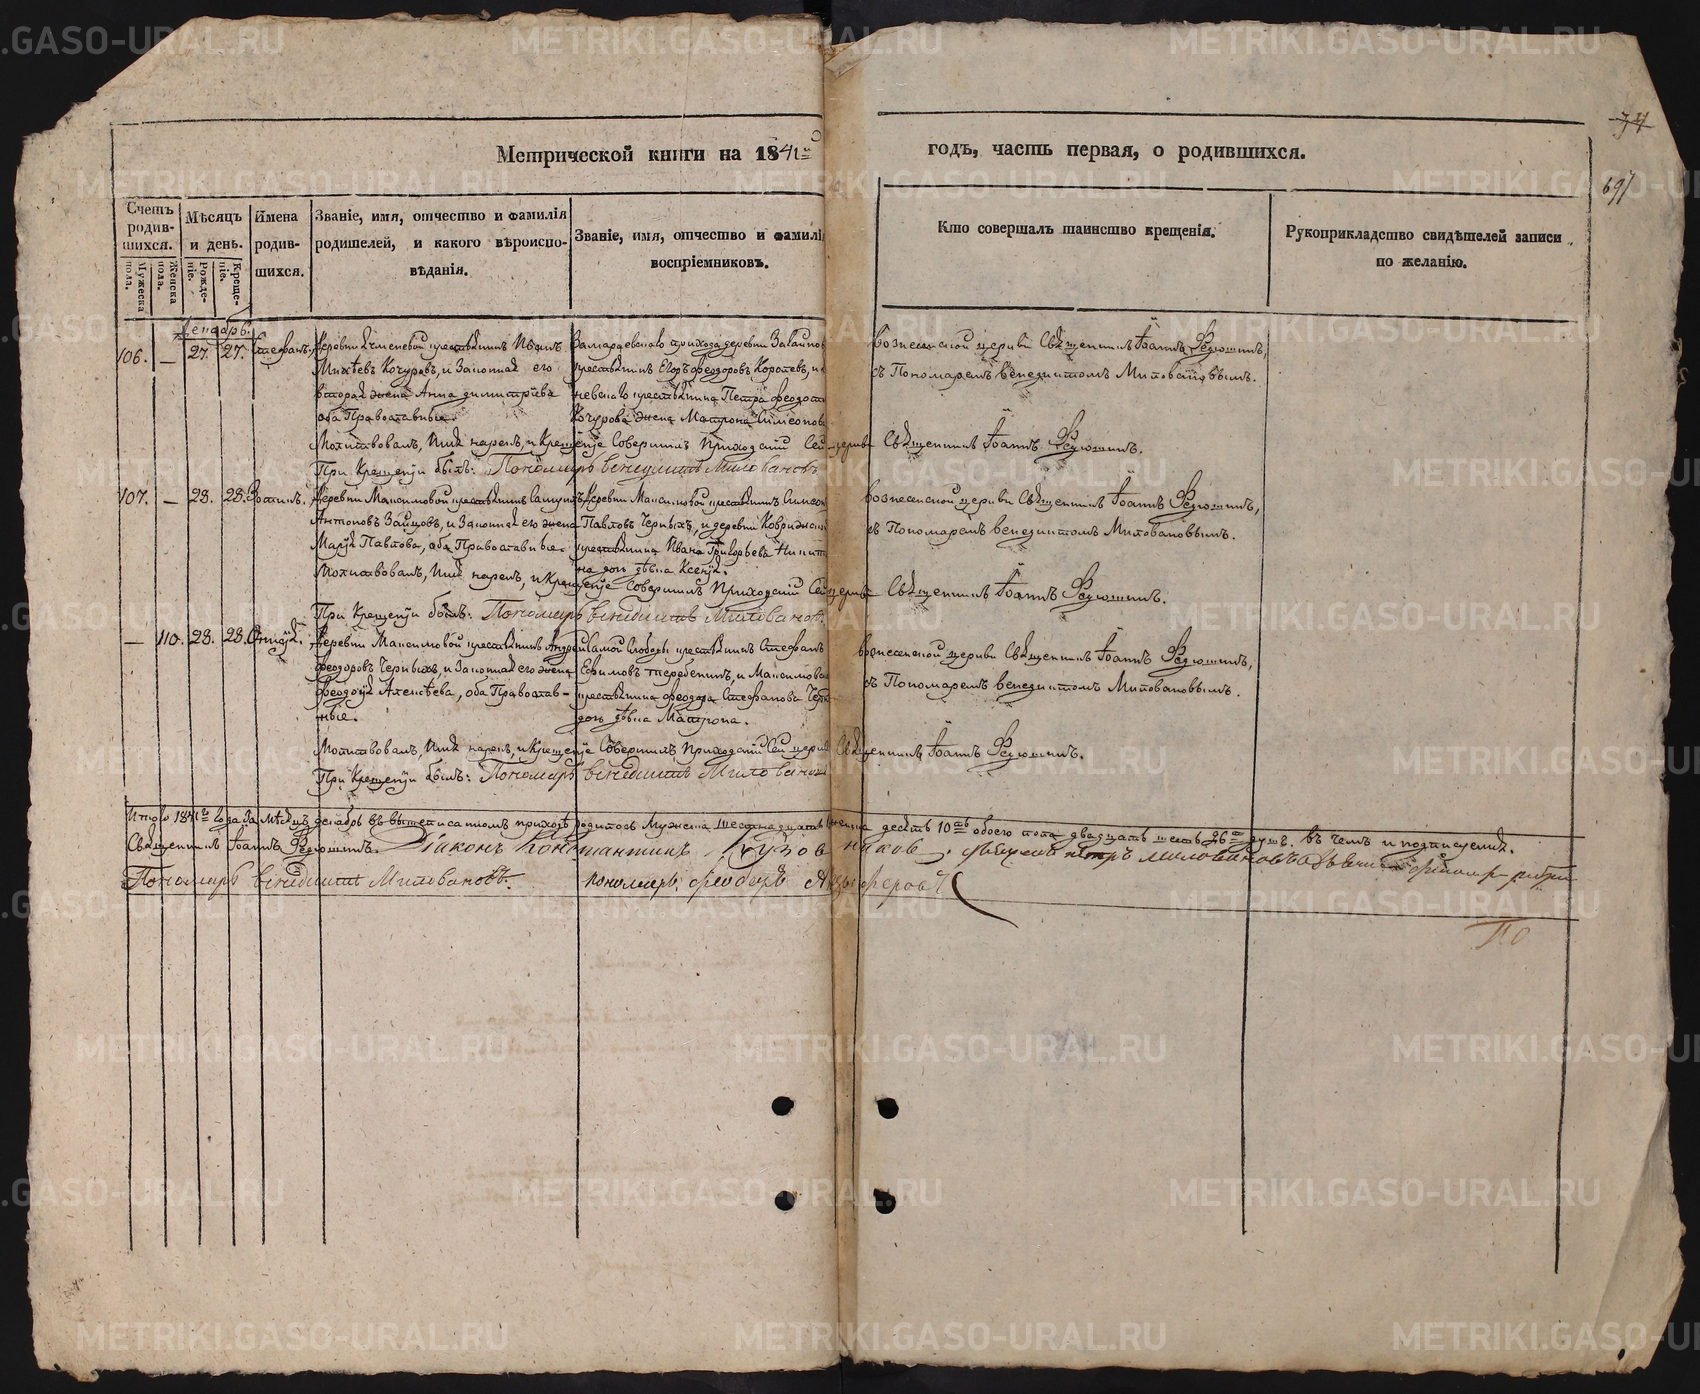 Метрической книги на 1841го годъ, часть первая, о родившихся.
697
Счетъ родив-шихся.
Мужеска пола.
Женска пола.
Мѣсяцъ и день.
Рожде-нiе.
Креще-нiе.
Имена родив-шихся.
Званiе, имя, отчество и фамилiя родителей, и какого вѣроиспо-вѣданiя.
Званiе, имя, отчество и фамилi воспрiемниковъ.
Кто совершалъ таинство крещенiя.
Рукоприкладство свидѣтелей записи по желанiю.
Декабрь.
106. — 27. 27. Стефанъ.
Деревни крестьянинъ Иванъ
Михѣевъ Кочуровъ, и Законная его
вторая жена Анна Димитрiева
оба Православные.
прихода деревни
крестьянинъ Егоръ Феодоровъ Королевъ, и
крестьянина Петра
Кочурова жена Матрона Симеонова
Вознесенской церкви Священникъ Iоаннъ Ѳедюшинъ,
съ Пономаремъ Венедиктомъ Миловановымъ.
Молитвовалъ, Имя нарекъ, и Крещенiе Совершилъ Приходскiй Сей церкви Священникъ Iоаннъ Ѳедюшинъ.
При Крещенiи былъ: Пономарь Венедиктъ Миловановъ
107. — 28. 28. Зотикъ.
Деревни Максимовой крестьянинъ
Антоновъ Зайцовъ, и Законная его жена
Марiя Павлова, оба Православные.
Деревни Максимовой крестьянинъ Симеонъ
Павловъ Черныхъ, и деревни
крестьянина Ивана Григорьева Никит
на дочь дѣвка Ксенiя.
Вознесенской церкви Священникъ Iоаннъ Ѳедюшинъ,
съ Пономаремъ Венедиктомъ Миловановымъ.
Молитвовалъ, Имя нарекъ, и Крещенiе Совершилъ Приходскiй Сей церкви Священникъ Iоаннъ Ѳедюшинъ.
При Крещенiи былъ: Пономарь Венедиктъ Миловановъ.
— 110. 28. 28.
Деревни Максимовой крестьянинъ Андрей
Феодоровъ Черныхъ, и Законная его жена
Феодосiя Алексѣева, оба Православ-
ные.
Самой Слободы крестьянинъ Стефанъ
Ефимовъ Теребенинъ, и Максимовой
крестьянина Феодора Стефанова Черн
дочь дѣвка Матрона.
Вознесенской церкви Священникъ Iоаннъ Ѳедюшинъ,
съ Пономаремъ Венедиктомъ Миловановымъ.
Молитвовалъ, Имя нарекъ, и Крещенiе Совершилъ Приходскiй Сей церкви Священникъ Iоаннъ Ѳедюшинъ.
При Крещенiи былъ: Пономарь Венедиктъ Миловановъ
Итого 1841го Года За Мѣсяцъ декабрь въ вышеписанномъ приходѣ родилось Мужеска шестнадцать Женска десять 10ть обоего пола двадцать шесть 26ть душъ. въ чемъ и подписуемся.
Священникъ Iоаннъ Ѳедюшинъ. Дiаконъ Константинъ Кузовников.
Пономарь Венедиктъ Миловановъ. Пономарь Феодоръ
METRIKI.GASO-URAL.RU